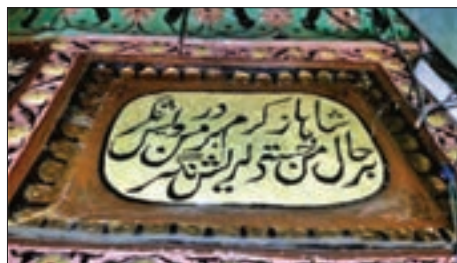 شاها ز کرم بر من درویش نگر
بر حال من خسته و دلریش نگر